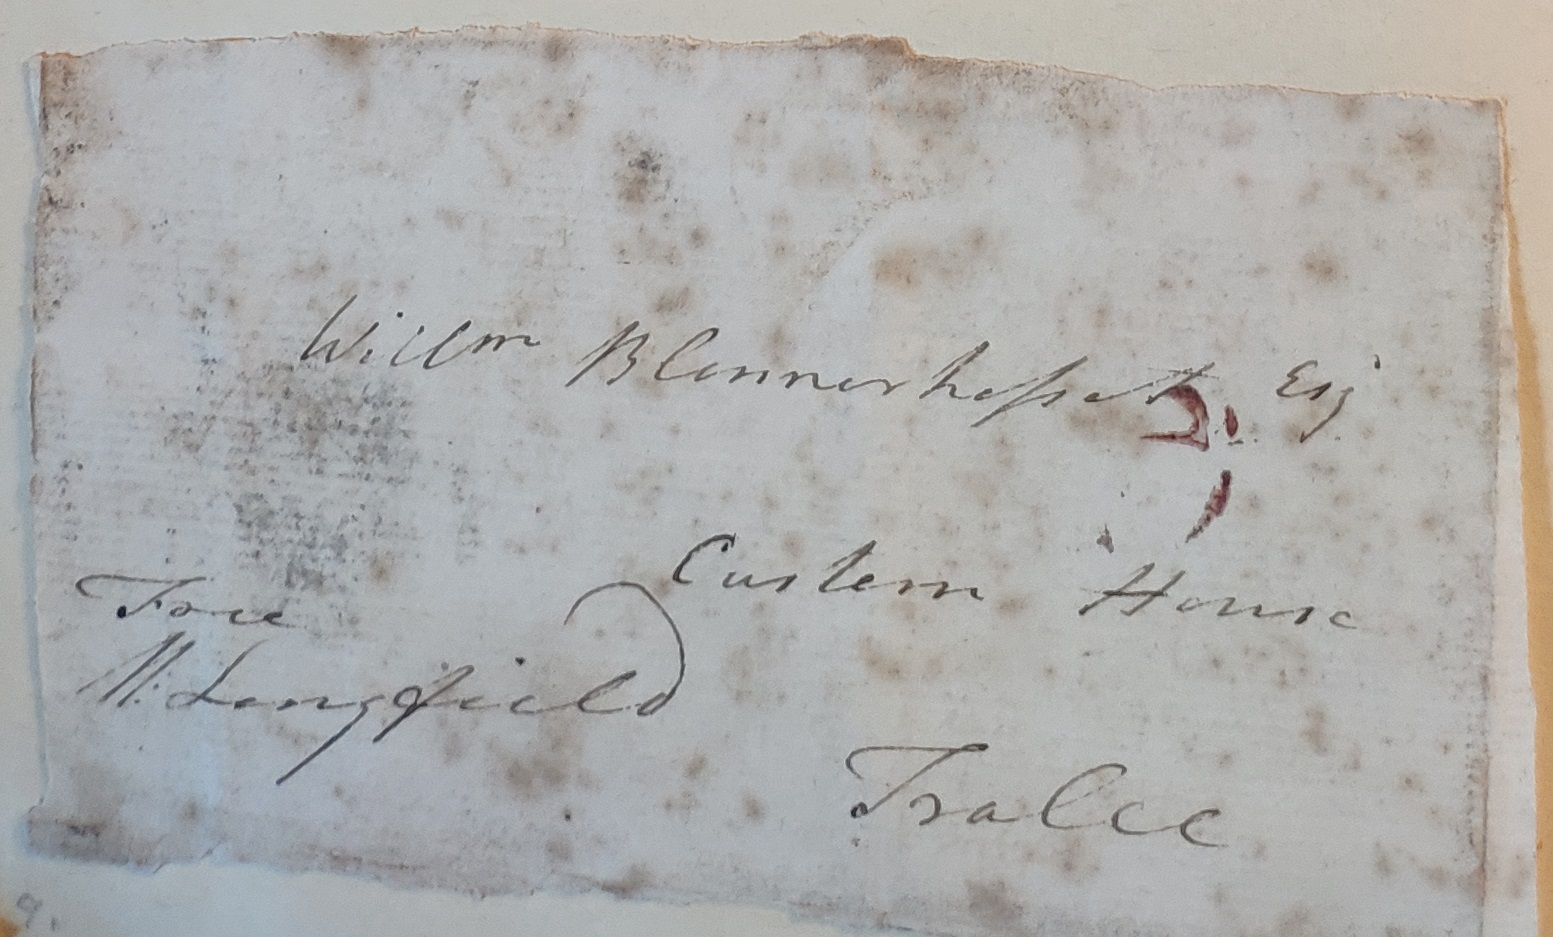 Willm Blennerhasset Esq
Custom House
Free
M. Longfield
Tralee
9.